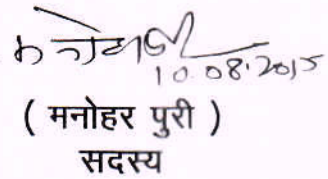 10.08.2015
( मनोहर पुरी )
सदस्य